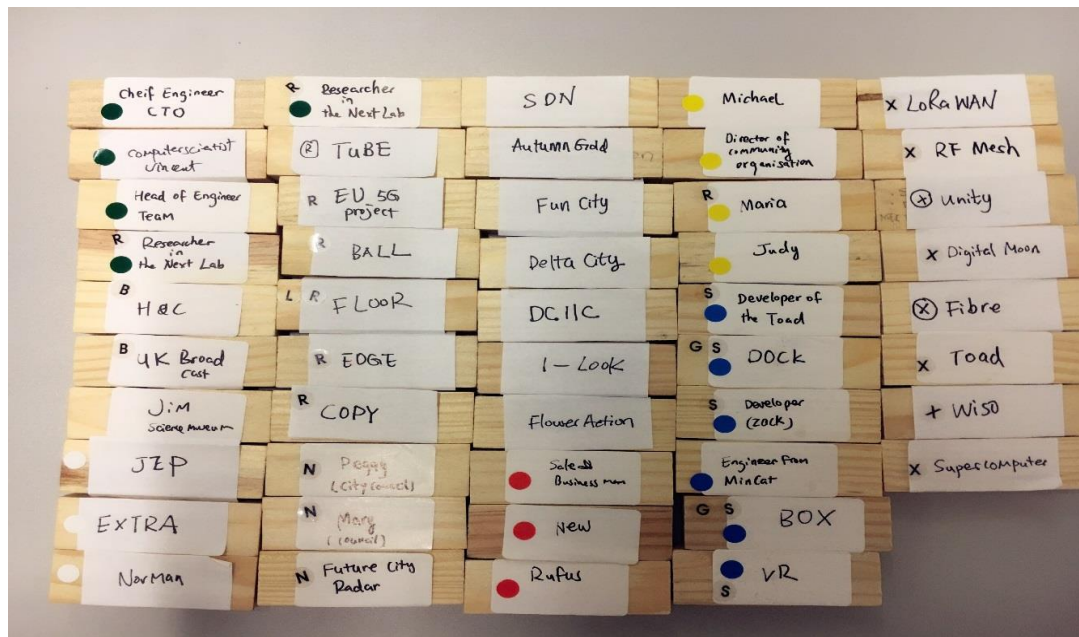 Cheif Engineer
CTO
Computerscietist
Vincent
Head of Engineer
Team
R Researcher
in
the Next Lab
B
H&C
B
UK Broad
cast
Jim
Science museum
JEP
EXTRA
Norman
R Researcher
in
the Next Lab
R TUBE
R EU 5G
project
R
BALL
L R FLOOR
R EDGE
R
COPY
N Peggy
(City council)
N
Mary
(council)
N Future City
Radar
SDN
Autumn Gold
Fun City
Delta City
DC11C
I-Look
Flower Action
Sale
Business man
New
Rufus
Michael
Director of
community
organisation
R
Maria
Judy
S Developer of
the Toad
G S DOCK
S Developer
(ZOCK)
Engineer From
MinCat
G S BOX
VR
S
X LoRaWAN
X RF Mesh
X Unity
X Digital Moon
X Fibre
X Toad
+ Wiso
X Supercomputer